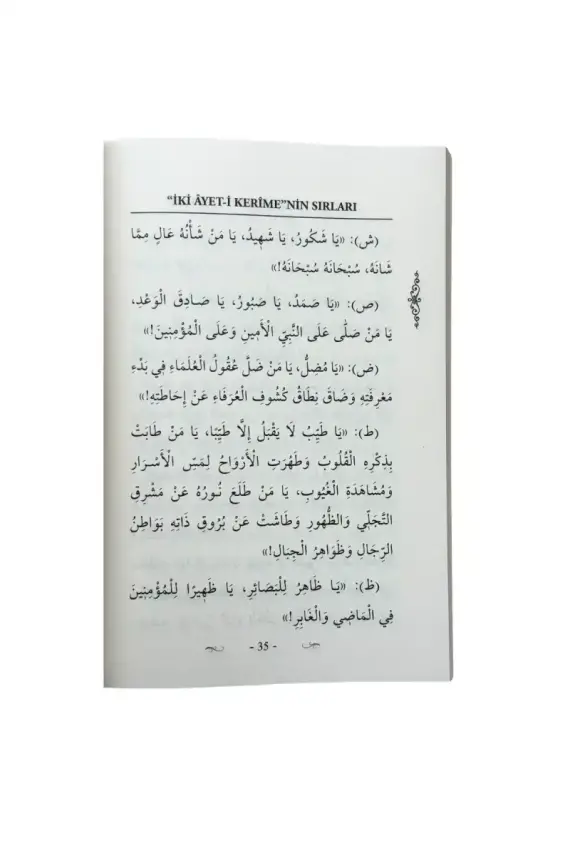 “İKİ ÂYET-İ KERÎME”NİN SIRLARI
(ش): «يَا شَكُورُ، يَا شَهِيدُ، يَا مَنْ شَأْنُهُ عَالٍ مِمَّا
شَانَهُ، سُبْحَانَهُ سُبْحَانَهُ!»
(ص): «يَا صَمَدُ، يَا صَبُورُ، يَا صَادِقَ الْوَعْدِ،
يَا مَنْ صَلَّى عَلَى النَّبِيِّ الْأَمِينِ وَعَلَى الْمُؤْمِنِينَ!»
(ض): «يَا مُضِلُّ، يَا مَنْ ضَلَّ عُقُولُ الْعُلَمَاءِ فِي بَدْءِ
مَعْرِفَتِهِ وَضَاقَ نِطَاقُ كُشُوفِ الْعُرَفَاءِ عَنْ إِحَاطَتِهِ!»
(ط): «يَا طَيِّبُ لَا يَقْبَلُ إِلَّا طَيِّبًا، يَا مَنْ طَابَتْ
بِذِكْرِهِ الْقُلُوبُ وَطَهُرَتِ الْأَرْوَاحُ لِمَسِّ الْأَسْرَارِ
وَمُشَاهَدَةِ الْغُيُوبِ، يَا مَنْ طَلَعَ نُورُهُ عَنْ مَشْرِقِ
التَّجَلِّي وَالظُّهُورِ وَطَاشَتْ عَنْ بُرُوقِ ذَاتِهِ بَوَاطِنُ
الرِّجَالِ وَظَوَاهِرُ الْجِبَالِ!»
(ظ): «يَا ظَاهِرُ لِلْبَصَائِرِ، يَا ظَهِيرًا لِلْمُؤْمِنِينَ
فِي الْمَاضِي وَالْغَابِرِ!»
- 35 -